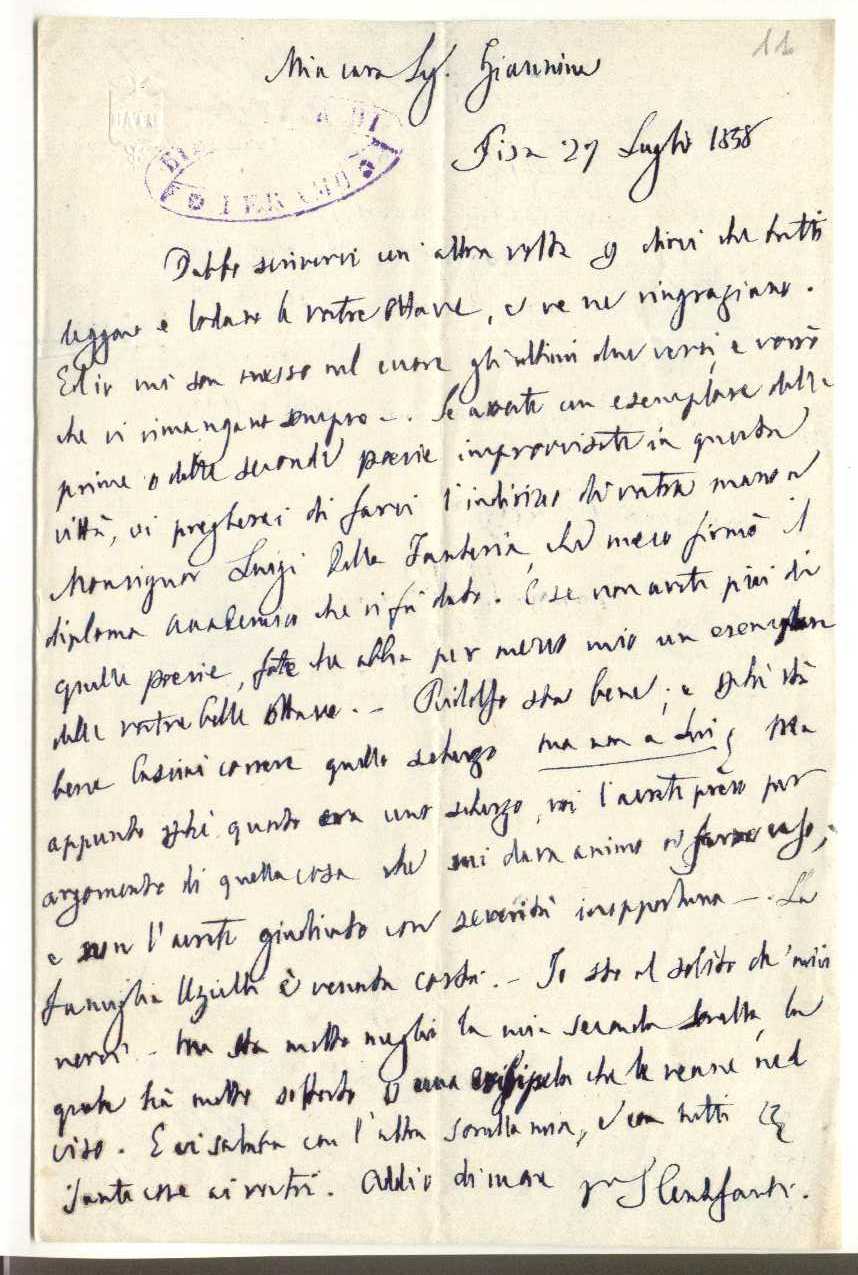 11
Mia cara Sig. Giannina
BATH
BI A DI
TERAMO
Pisa 27 Luglio 1858
Debbo scrivervi un' altra volta p dirvi che tutti
leggono e lodano le vostre Ottave, e ve ne ringraziano.
Ed io mi son messo nel cuore gli ultimi due versi, e vorrò
che vi rimangano sempre —. Se avete un esemplare delle
prime o delle seconde poesie improvvisate in questa
città, vi pregherei di farvi l'indirizzo di vostra mano a
Monsignor Luigi Della Fanteria, che meco firmò il
diploma accademico che vi fù dato. E se non avete più di
quelle poesie, fate ch' abbia per mezzo mio un esemplare
delle vostre belle Ottave. — Ridolfo sta bene; e
bene lasciai correre quello scherzo ma non a Lui; ma
appunto questo era uno scherzo, voi l'avete preso per
argomento di quella cosa che mi dava animo a farne caso,
e non l'avete giudicato con severità inopportuna —. La
famiglia Uzielli è venuta costà. — Io sto al solito de' miei
nervi — ma sta molto meglio la mia seconda sorella, la
quale hà molto sofferto una erisipela che le venne nel
viso. E vi saluta con l'altra sorella mia, e con tutti
Tante cose ai vostri. Addio di cuore S Centofanti.